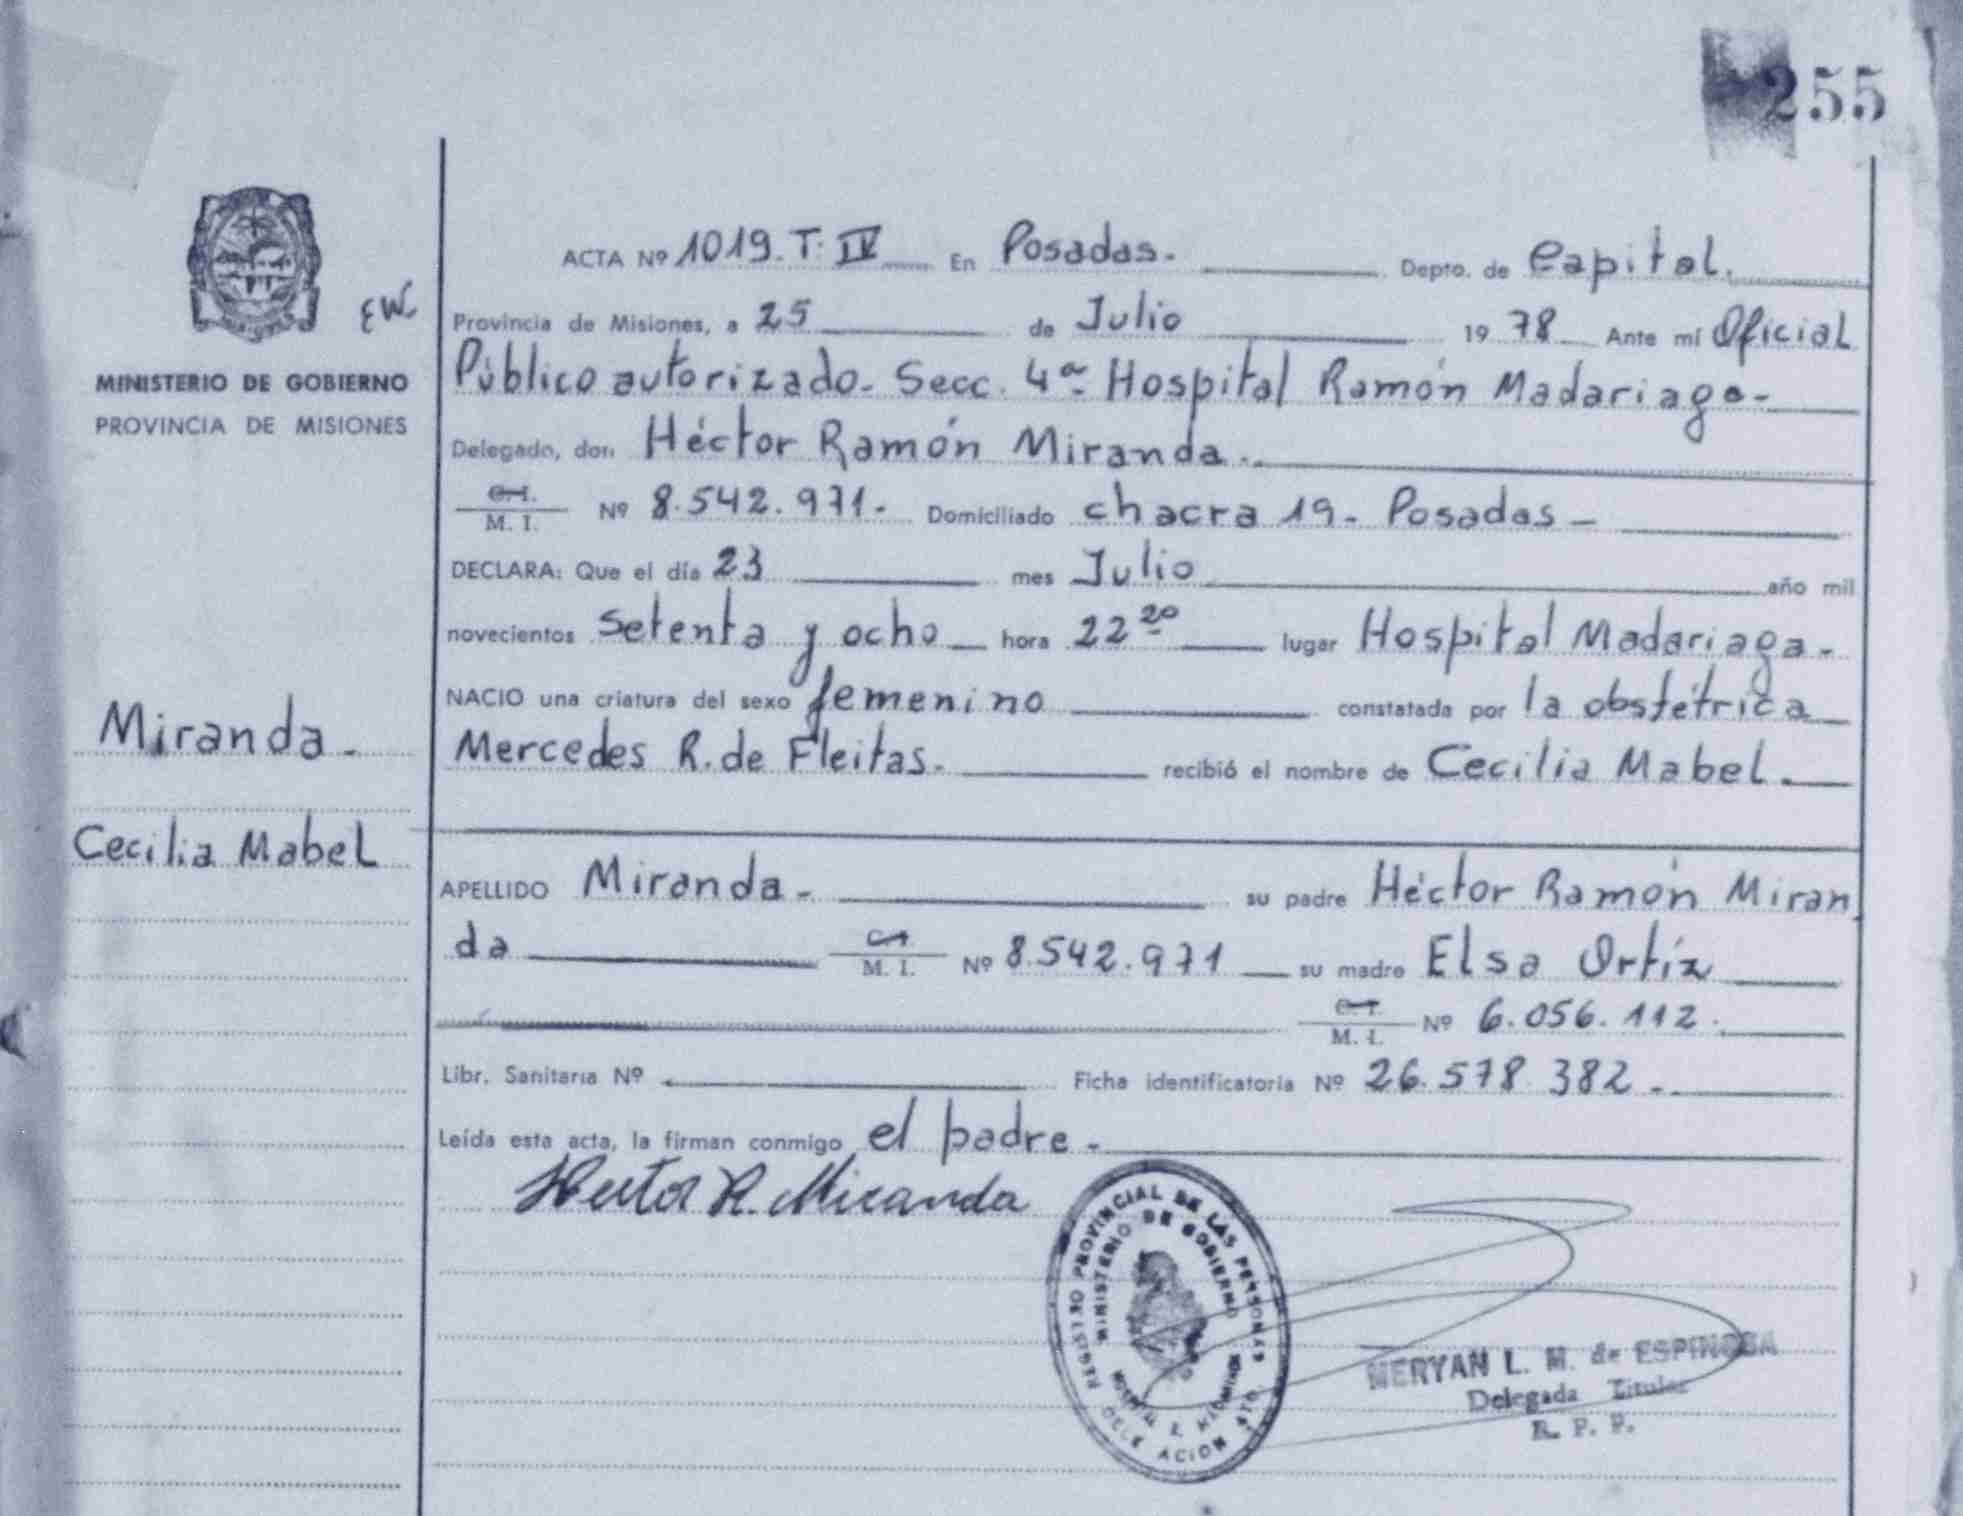 255
ACTA Nº 1019. T. IV En Posadas. Depto. de Capital.
EW
Provincia de Misiones, a 25 de Julio 19 78 Ante mí Oficial
MINISTERIO DE GOBIERNO
PROVINCIA DE MISIONES
Público autorizado. Secc. 4ª Hospital Ramón Madariaga-
Delegado, don Héctor Ramón Miranda.
C. I.
M. I. Nº 8.542.971. Domiciliado chacra 19- Posadas -
DECLARA: Que el día 23 mes Julio año mil
novecientos setenta y ocho hora 22 20 lugar Hospital Madariaga-
NACIO una criatura del sexo femenino constatada por la obstétrica
Miranda.
Mercedes R. de Fleitas. recibió el nombre de Cecilia Mabel.
Cecilia Mabel
APELLIDO Miranda. su padre Héctor Ramón Miran
da C. I. M. I. Nº 8.542.971 su madre Elsa Ortíz
C. I. M. I. Nº 6.056.112.
Libr. Sanitaria Nº Ficha identificatoria Nº 26.578.382.
Leída esta acta, la firman conmigo el padre.
Hector R. Miranda
REGISTRO PROVINCIAL DE LAS PERSONAS
MINISTERIO DE GOBIERNO
MERYAN L. M. de ESPINOSA
Delegada Titular
R. P. P.